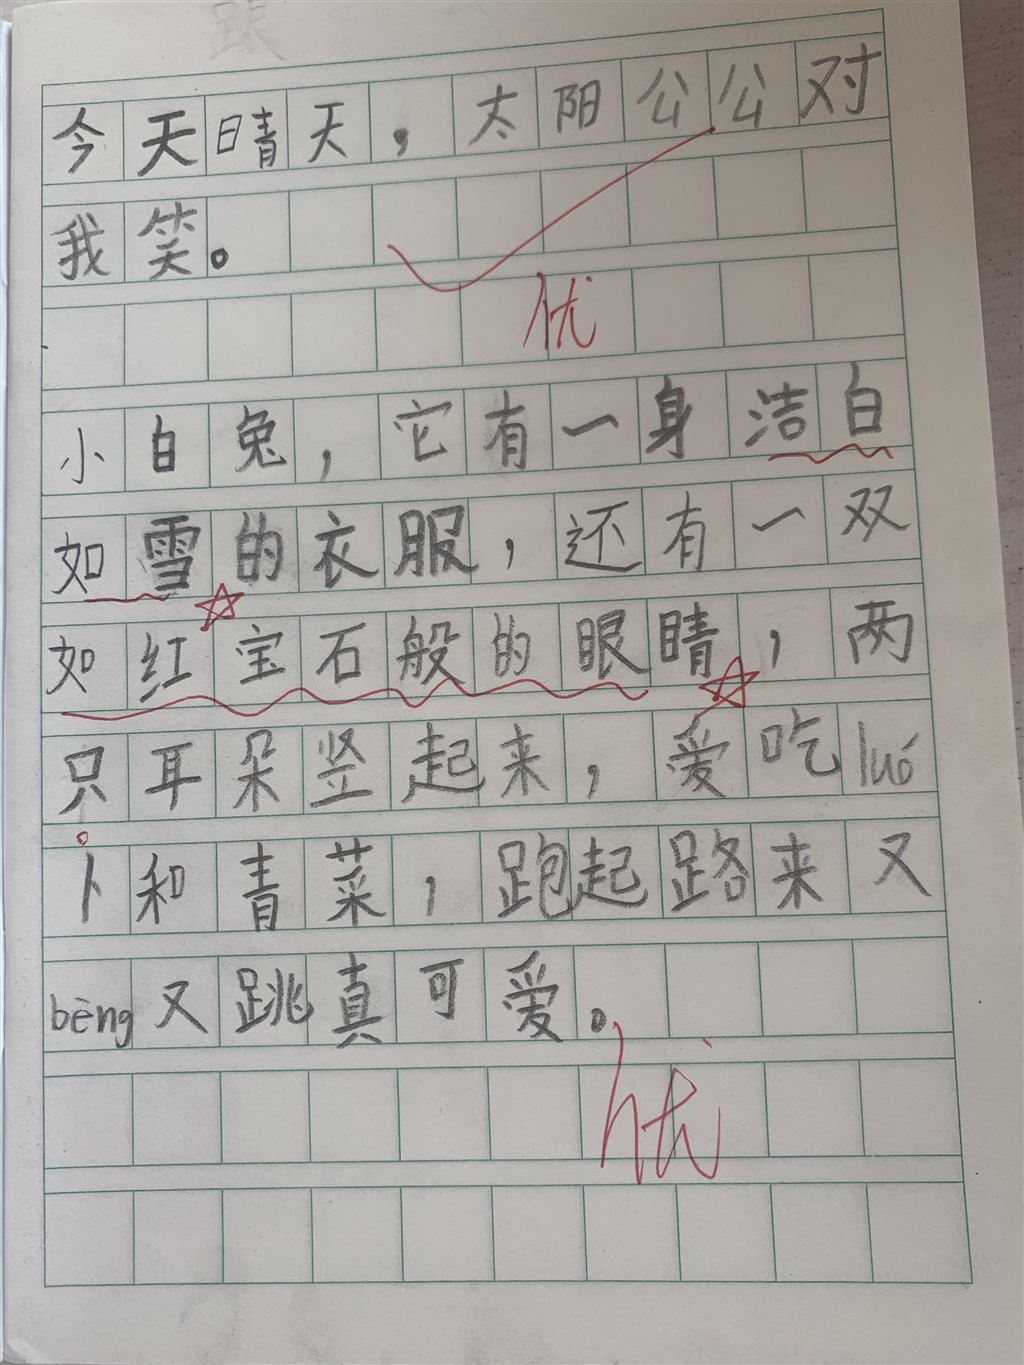 今天晴天，太阳公公对
我笑。
优
小白兔，它有一身洁白
如雪的衣服，还有一双
如红宝石般的眼睛，两
只耳朵竖起来，爱吃luó
卜和青菜，跑起路来又
bèng又跳真可爱。
优